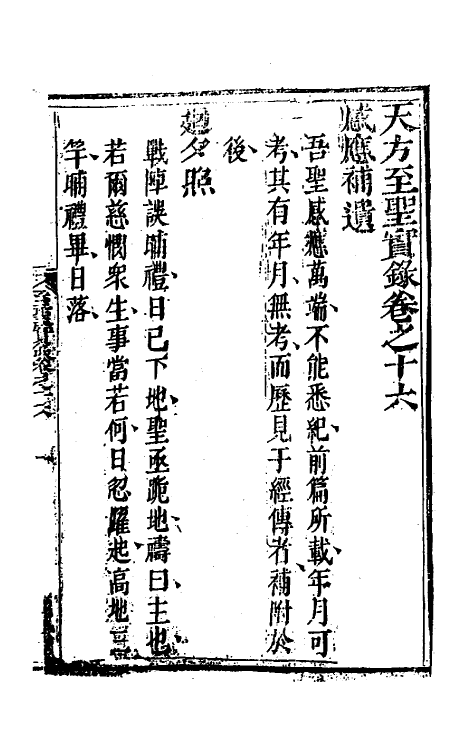 天方至聖實錄卷之十六
感應補遺
吾聖感應萬端不能悉紀前篇所載年月可
考其有年月無考而歷見于經傳者補附於
後
起夕照
戰陣誤晡禮日已下地聖亟跪地禱曰主也
若爾慈憫衆生事當若何日忽躍起高地三
竿晡禮畢日落